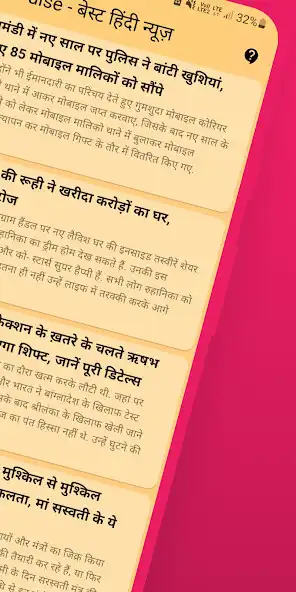 32%
- बेस्ट हिंदी न्यूज़
मंडी में नए साल पर पुलिस ने बांटी खुशियां,
85 मोबाइल मालिकों को सौंपे
भी ईमानदारी का परिचय देते हुए गुमशुदा मोबाइल कोरियर
थाने में आकर मोबाइल जप्त करवाए. जिसके बाद नए साल के
को लेकर मोबाइल मालिकों थाने में बुलाकर मोबाइल
कर मोबाइल गिफ्ट के तौर में वितरित किए गए.
की रूही ने खरीदा करोड़ों का घर,
हैंडल पर नए लैविश घर की इनसाइड तस्वीरें शेयर
का ड्रीम होम देख सकते हैं. उनकी इस
और को- स्टार्स सुपर हैप्पी हैं. सभी लोग रुहानिका को
इतना ही नहीं उन्हें लाइफ में तरक्की करके आगे
के ख़तरे के चलते ऋषभ
शिफ्ट, जानें पूरी डिटेल्स
का दौरा खत्म करके लौटी थी. जहां पर
और भारत ने बांग्लादेश के खिलाफ टेस्ट
बाद श्रीलंका के खिलाफ खेली जाने
का पंत हिस्सा नहीं थे. उन्हें घुटने की
मुश्किल से मुश्किल
मां सस्वती के ये
और मंत्रों का जिक्र किया
की तैयारी कर रहे हैं, या फिर
के दिन सरस्वती मंत्र की